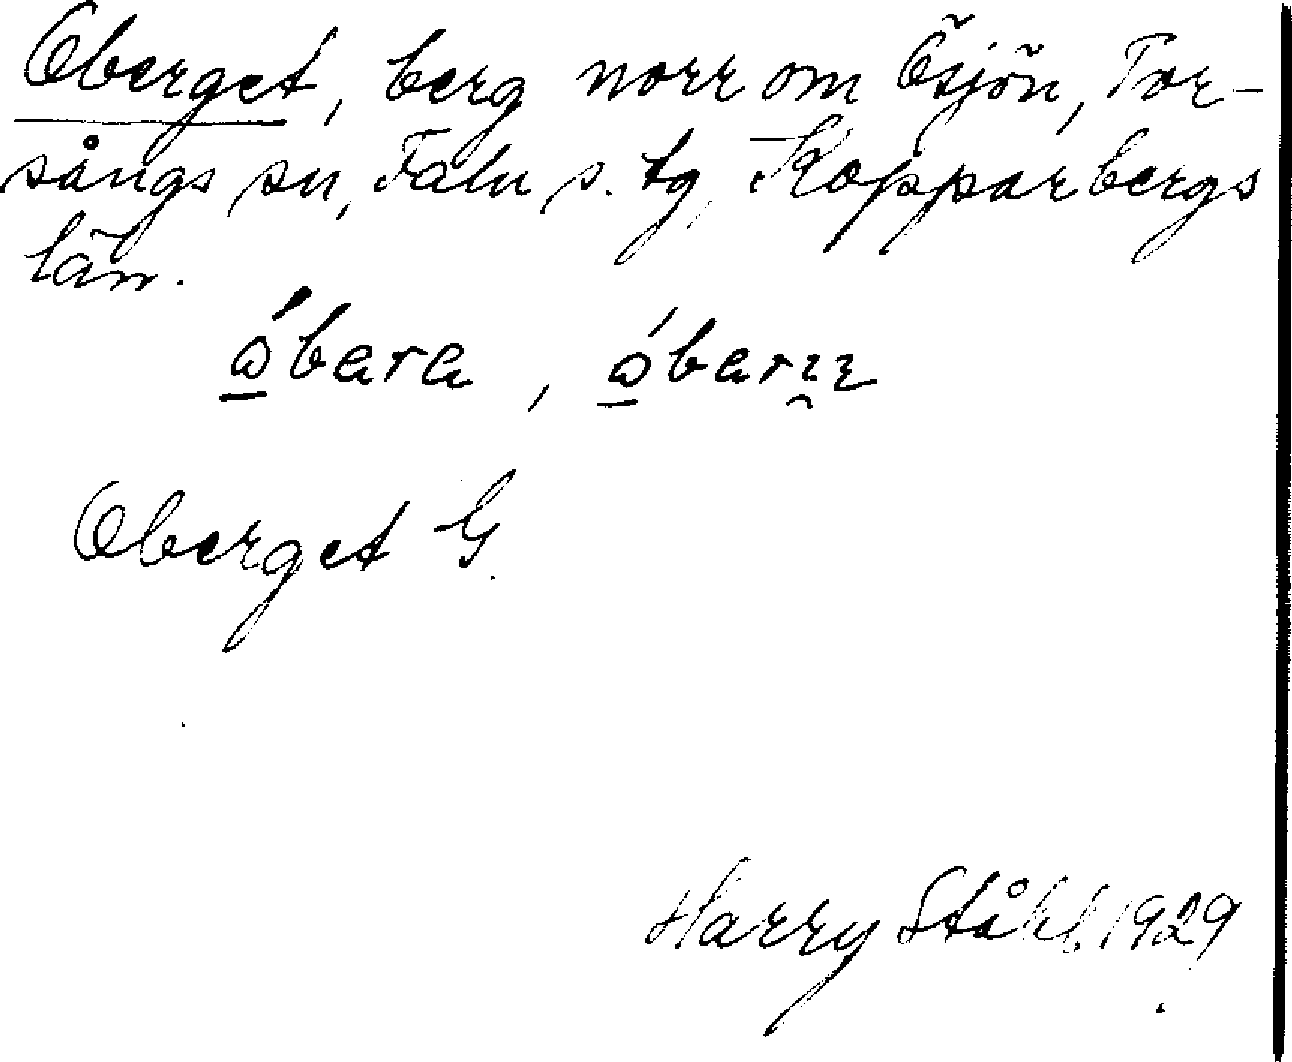 Oberget, berg norr om Ösjön, Tor-
sångs sn, Falu s. tg, Kopparbergs
län.
Oberget G.
Harry Ståhl 1929